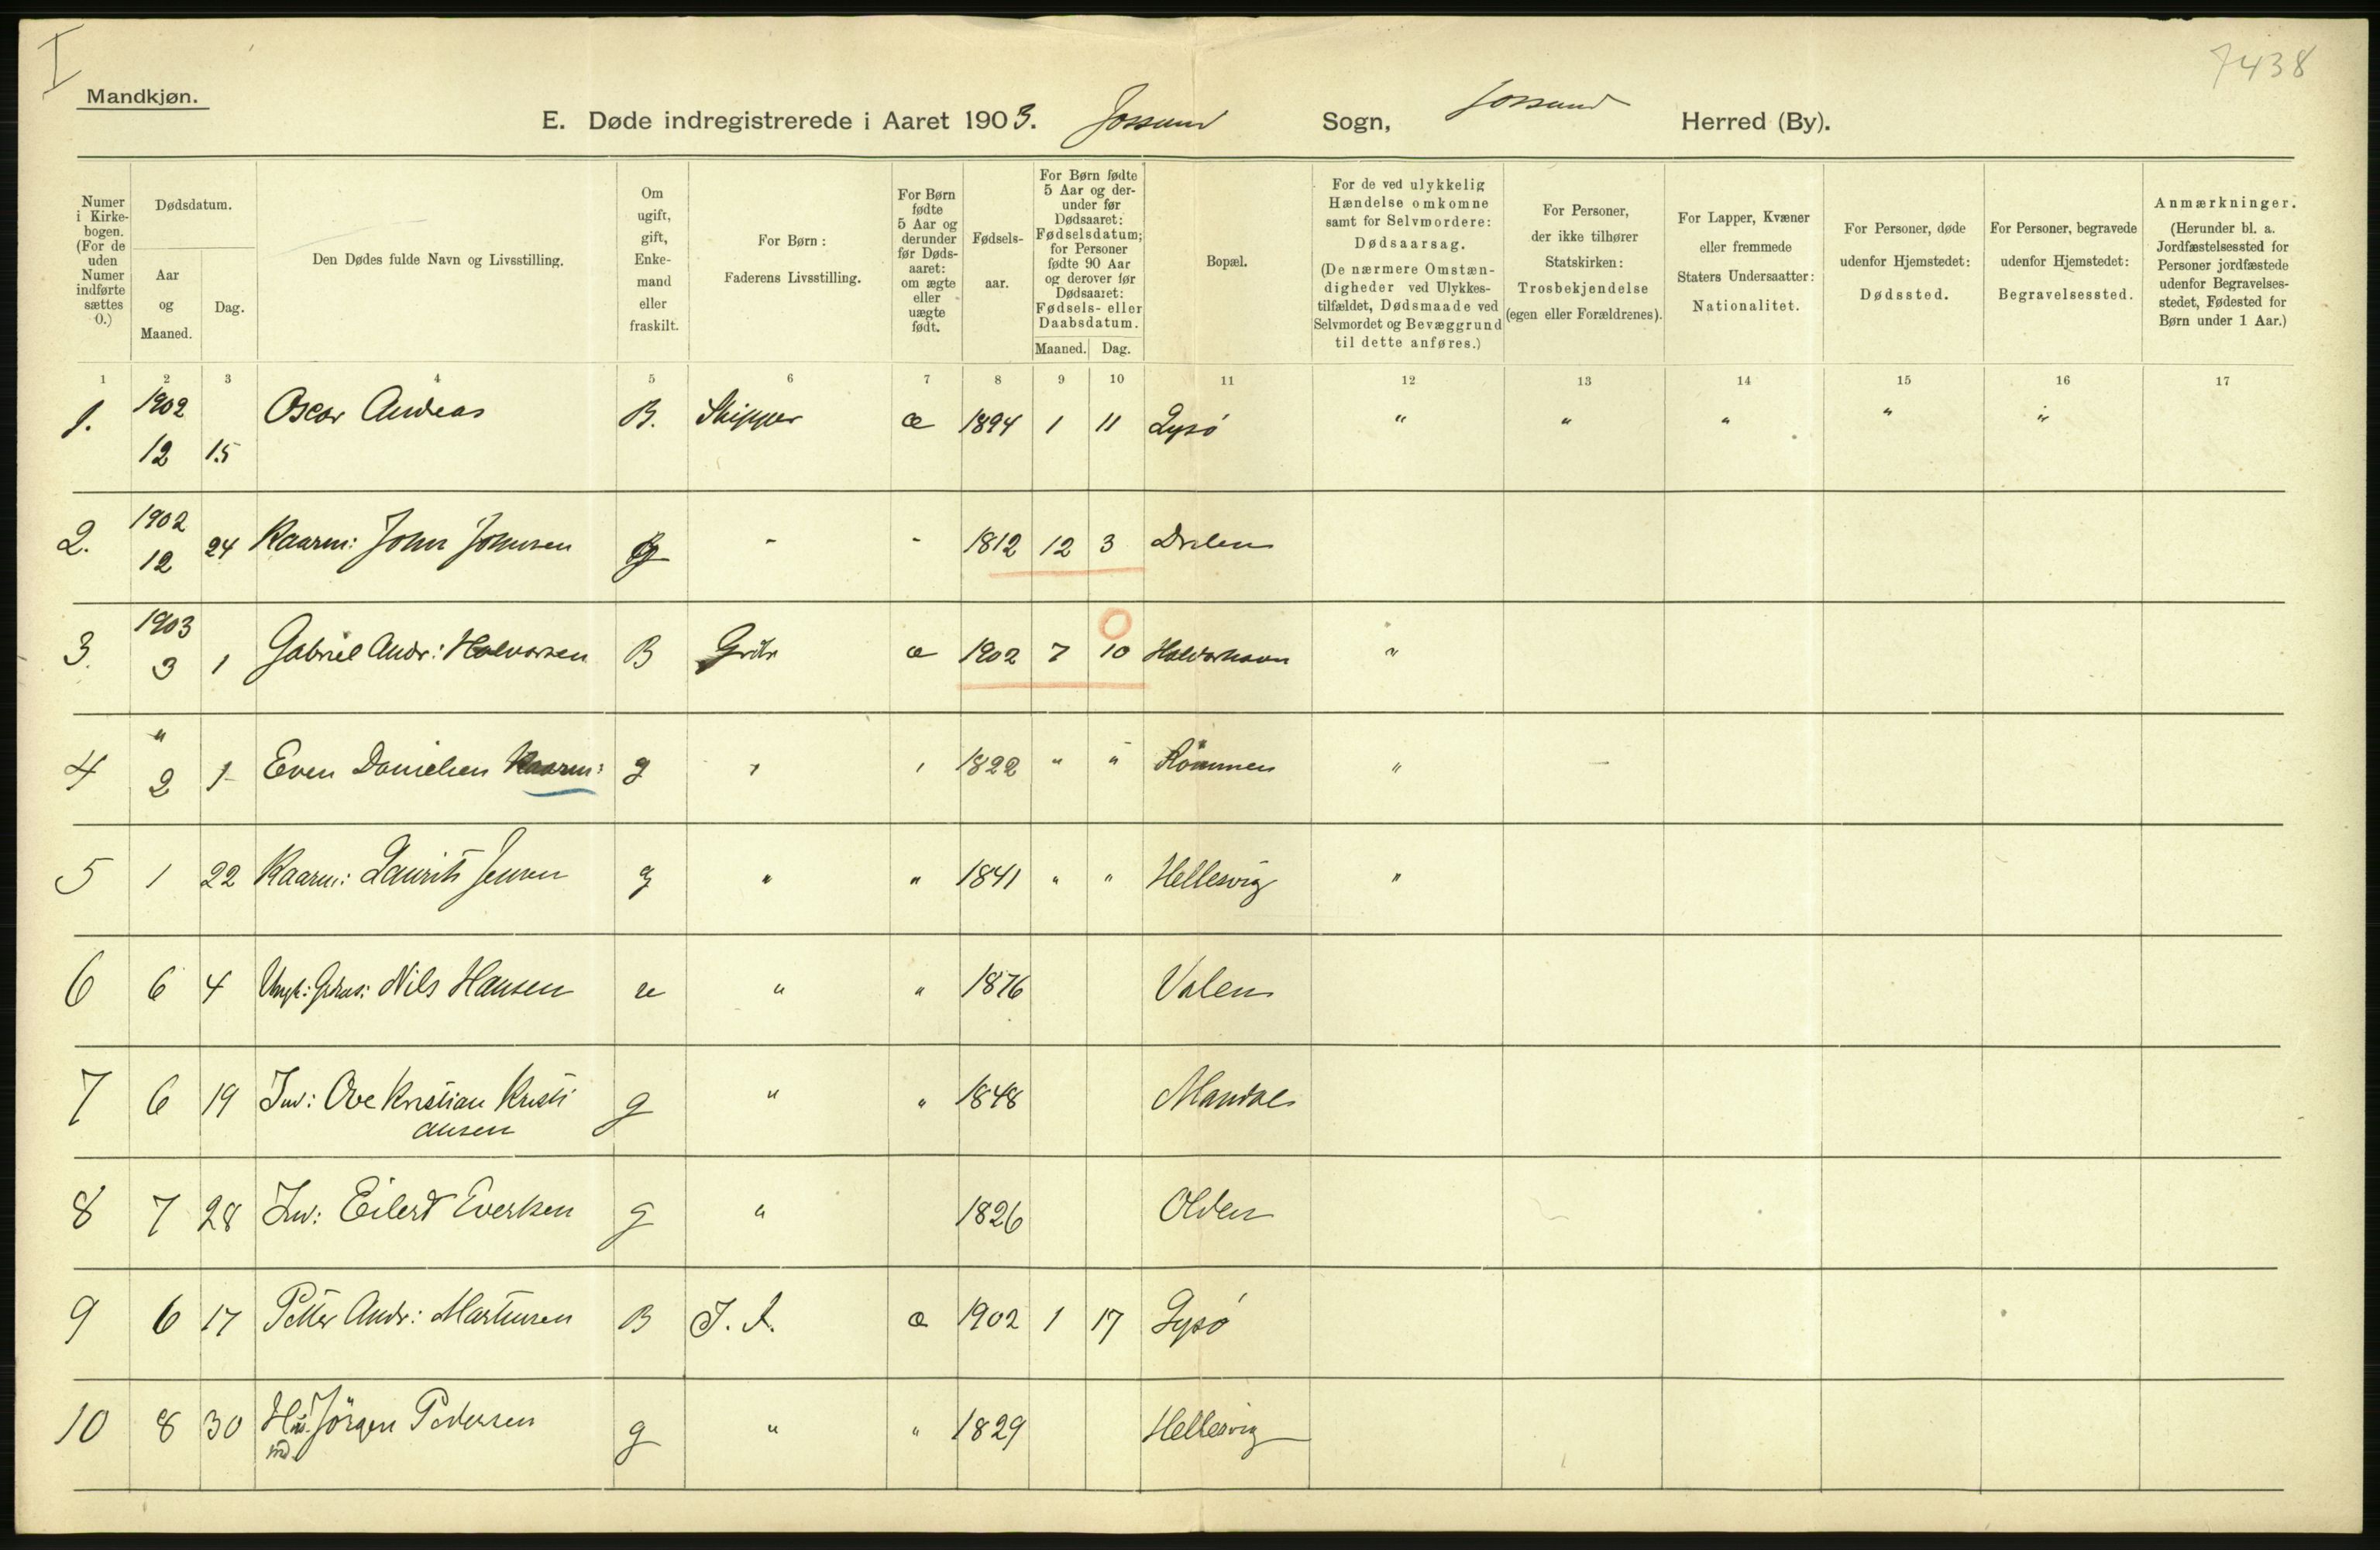 I
7438
Mandkjøn.
E. Døde indregistrerede i Aaret 1903. Jossund Sogn, Jossund Herred (By).
Numer i Kirkebogen. (For de uden Numer indførte sættes 0.)
Dødsdatum.
Aar og Maaned.
Dag.
Den Dødes fulde Navn og Livsstilling.
Om ugift, gift, Enkemand eller fraskilt.
For Børn:
Faderens Livsstilling.
For Børn fødte 5 Aar og derunder før Dødsaaret: om ægte eller uægte født.
Fødselsaar.
For Børn fødte 5 Aar og derunder før Dødsaaret: Fødselsdatum; for Personer fødte 90 Aar og derover før Dødsaaret: Fødsels- eller Daabsdatum.
Maaned. Dag.
Bopæl.
For de ved ulykkelig Hændelse omkomne samt for Selvmordere: Dødsaarsag.
(De nærmere Omstændigheder ved Ulykkestilfældet, Dødsmaade ved Selvmordet og Bevæggrund til dette anføres.)
For Personer, der ikke tilhører Statskirken: Trosbekjendelse (egen eller Forældrenes).
For Lapper, Kvæner eller fremmede Staters Undersaatter: Nationalitet.
For Personer, døde udenfor Hjemstedet: Dødssted.
For Personer, begravede udenfor Hjemstedet: Begravelsessted.
Anmærkninger.
(Herunder bl. a. Jordfæstelsessted for Personer jordfæstede udenfor Begravelsesstedet, Fødested for Børn under 1 Aar.)
1 2 3 4 5 6 7 8 9 10 11 12 13 14 15 16 17
1. 1902 12 15 Oscar Andreas B. Skipper æ 1894 1 11 Lysö " " " " "
2. 1902 12 24 Kaarm: John Johnsen g - - 1812 12 3
3. 1903 3 1 Gabriel Andr: Halvorsen B æ 1902 7 10 O "
4 " 2 1 Even Danielsen Kaarm: g " " 1822 " " "
5 1 22 Kaarm: Laurits Jensen g " " 1841 " " Hellesvig "
6 6 4 Nils Hansen u " " 1876 Valen
7 6 19 Ind: Ove Kristian Kristi
ansen g " " 1848
8 7 28 Ind: Eilert Evertsen g " 1826 Olden
9 6 17 Petter Andr: Martinsen B æ 1902 1 17 Lysö
10 8 30 Jörgen Pedersen g " " 1829 Hellesvig